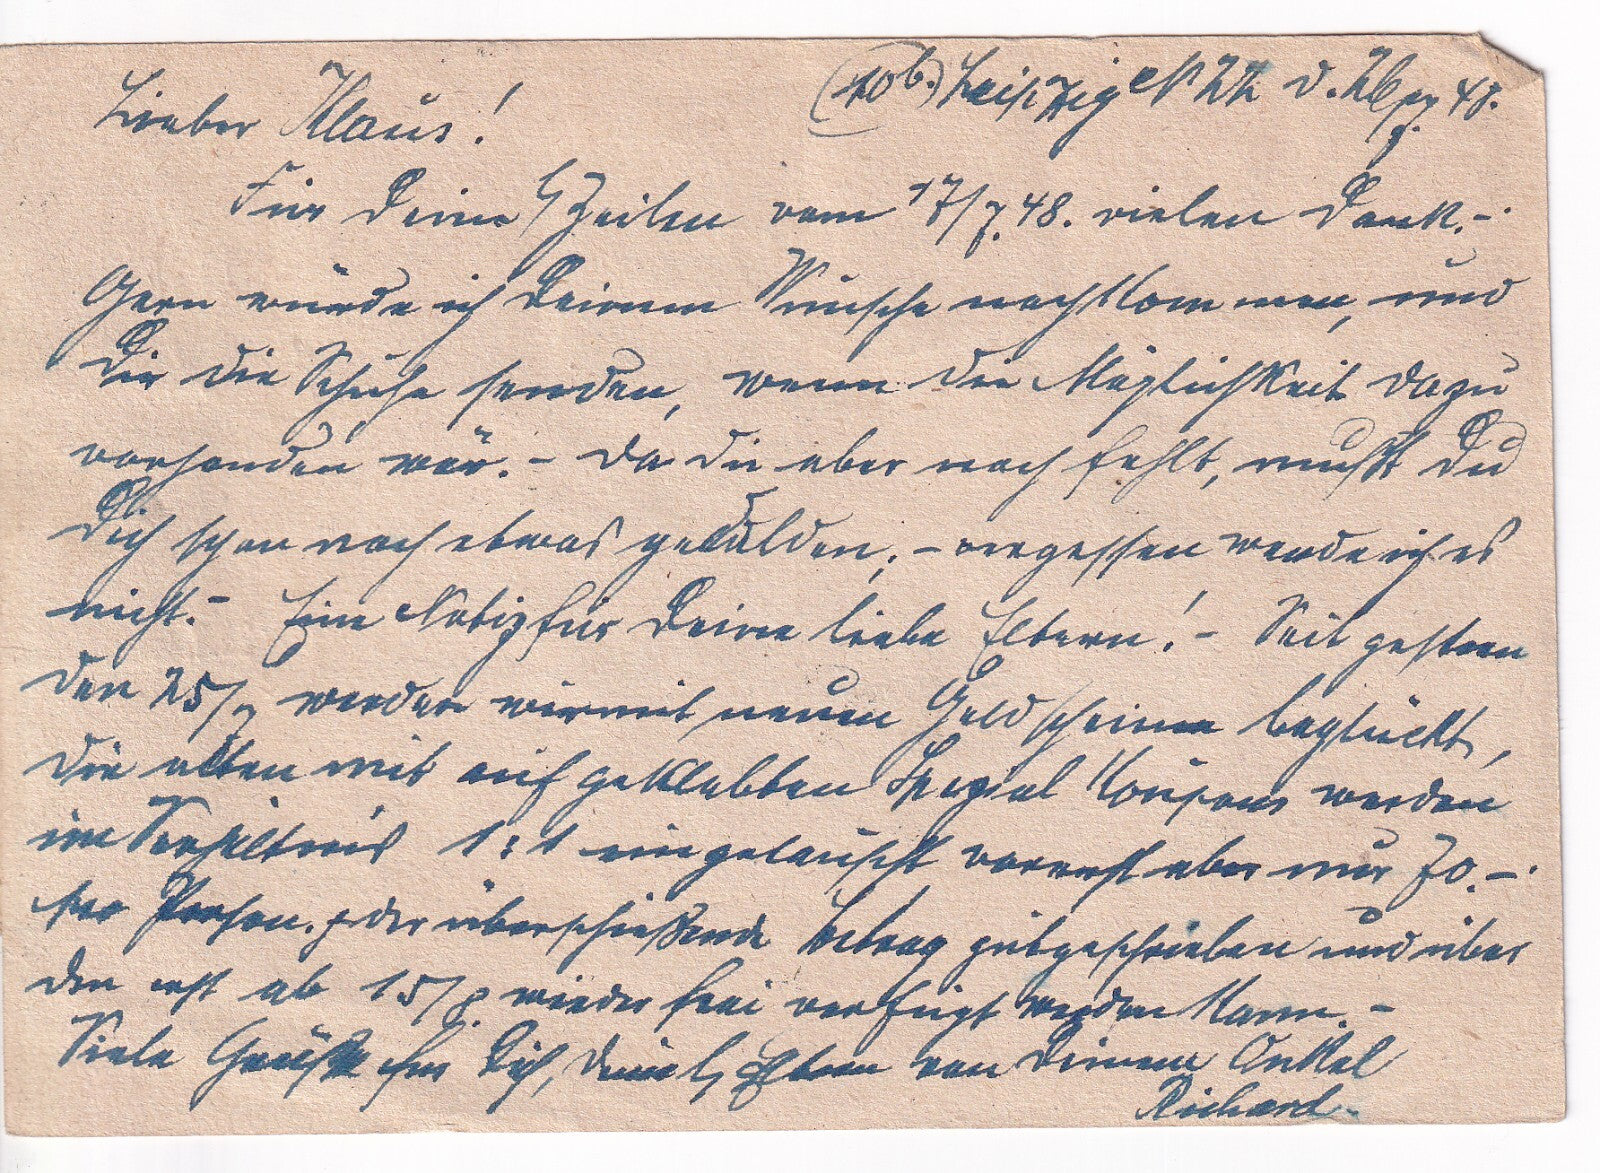 (10b.) Leipzig N 22 d. 26/7. 48.
Lieber Klaus!
Für Deine lb Zeilen vom 17/7.48. vielen Dank.-
Gern würde ich Deinem Wunsche nachkommen, und
Dir die Schuhe senden, wenn die Möglichkeit dazu
vorhanden wär.- Da die aber noch fehlt, mußt Du
Dich schon noch etwas gedulden,- vergessen werde ich es
nicht.- Eine Notiz für Deine liebe Eltern!- Seit gestern
den 25/7 werden wir mit neuen Geldscheinen beglückt,
die alten mit aufgeklebten Spezial Koupons werden
im Verhältnis 1:1 eingetauscht vorerst aber nur 70.-
pro Person. der überschießende Betrag gutgeschrieben und über
den erst ab 15/8. wieder frei verfügt werden kann.-
Viele Grüße für Dich, Deine lb Eltern von Deinem Onkel
Richard.